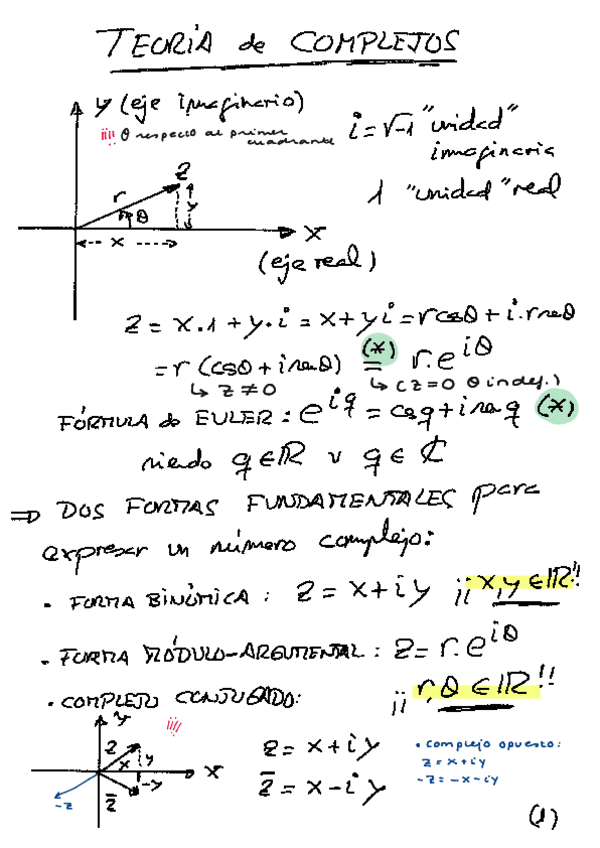 TEORÍA de COMPLEJOS
y (eje imaginario)
¡¡¡¡ θ respecto al primer
cuadrante
i = √-1 "unidad"
imaginaria
1 "unidad" real
z
r
θ
y
x
x
(eje real)
z = x.1 + y.i = x + yi = r cosθ + i.r senθ
= r (cosθ + i senθ) (*) = r.e^{iθ}
↳ z ≠ 0 ↳ (z=0 θ indef.)
FÓRMULA de EULER: e^{iq} = cosq + i senq (*)
siendo q ∈ ℝ ∨ q ∈ ℂ
⇒ DOS FORMAS FUNDAMENTALES para
expresar un número complejo:
• FORMA BINÓMICA: z = x + iy ¡¡ x,y ∈ ℝ!!
• FORMA MÓDULO-ARGUMENTAL: z = r.e^{iθ}
¡¡ r,θ ∈ ℝ!!
• COMPLEJO CONJUGADO:
y
z
x
y
-y
x
-z
z̄
z = x + iy
z̄ = x - iy
• complejo opuesto:
z = x + iy
-z = -x - iy
(1)